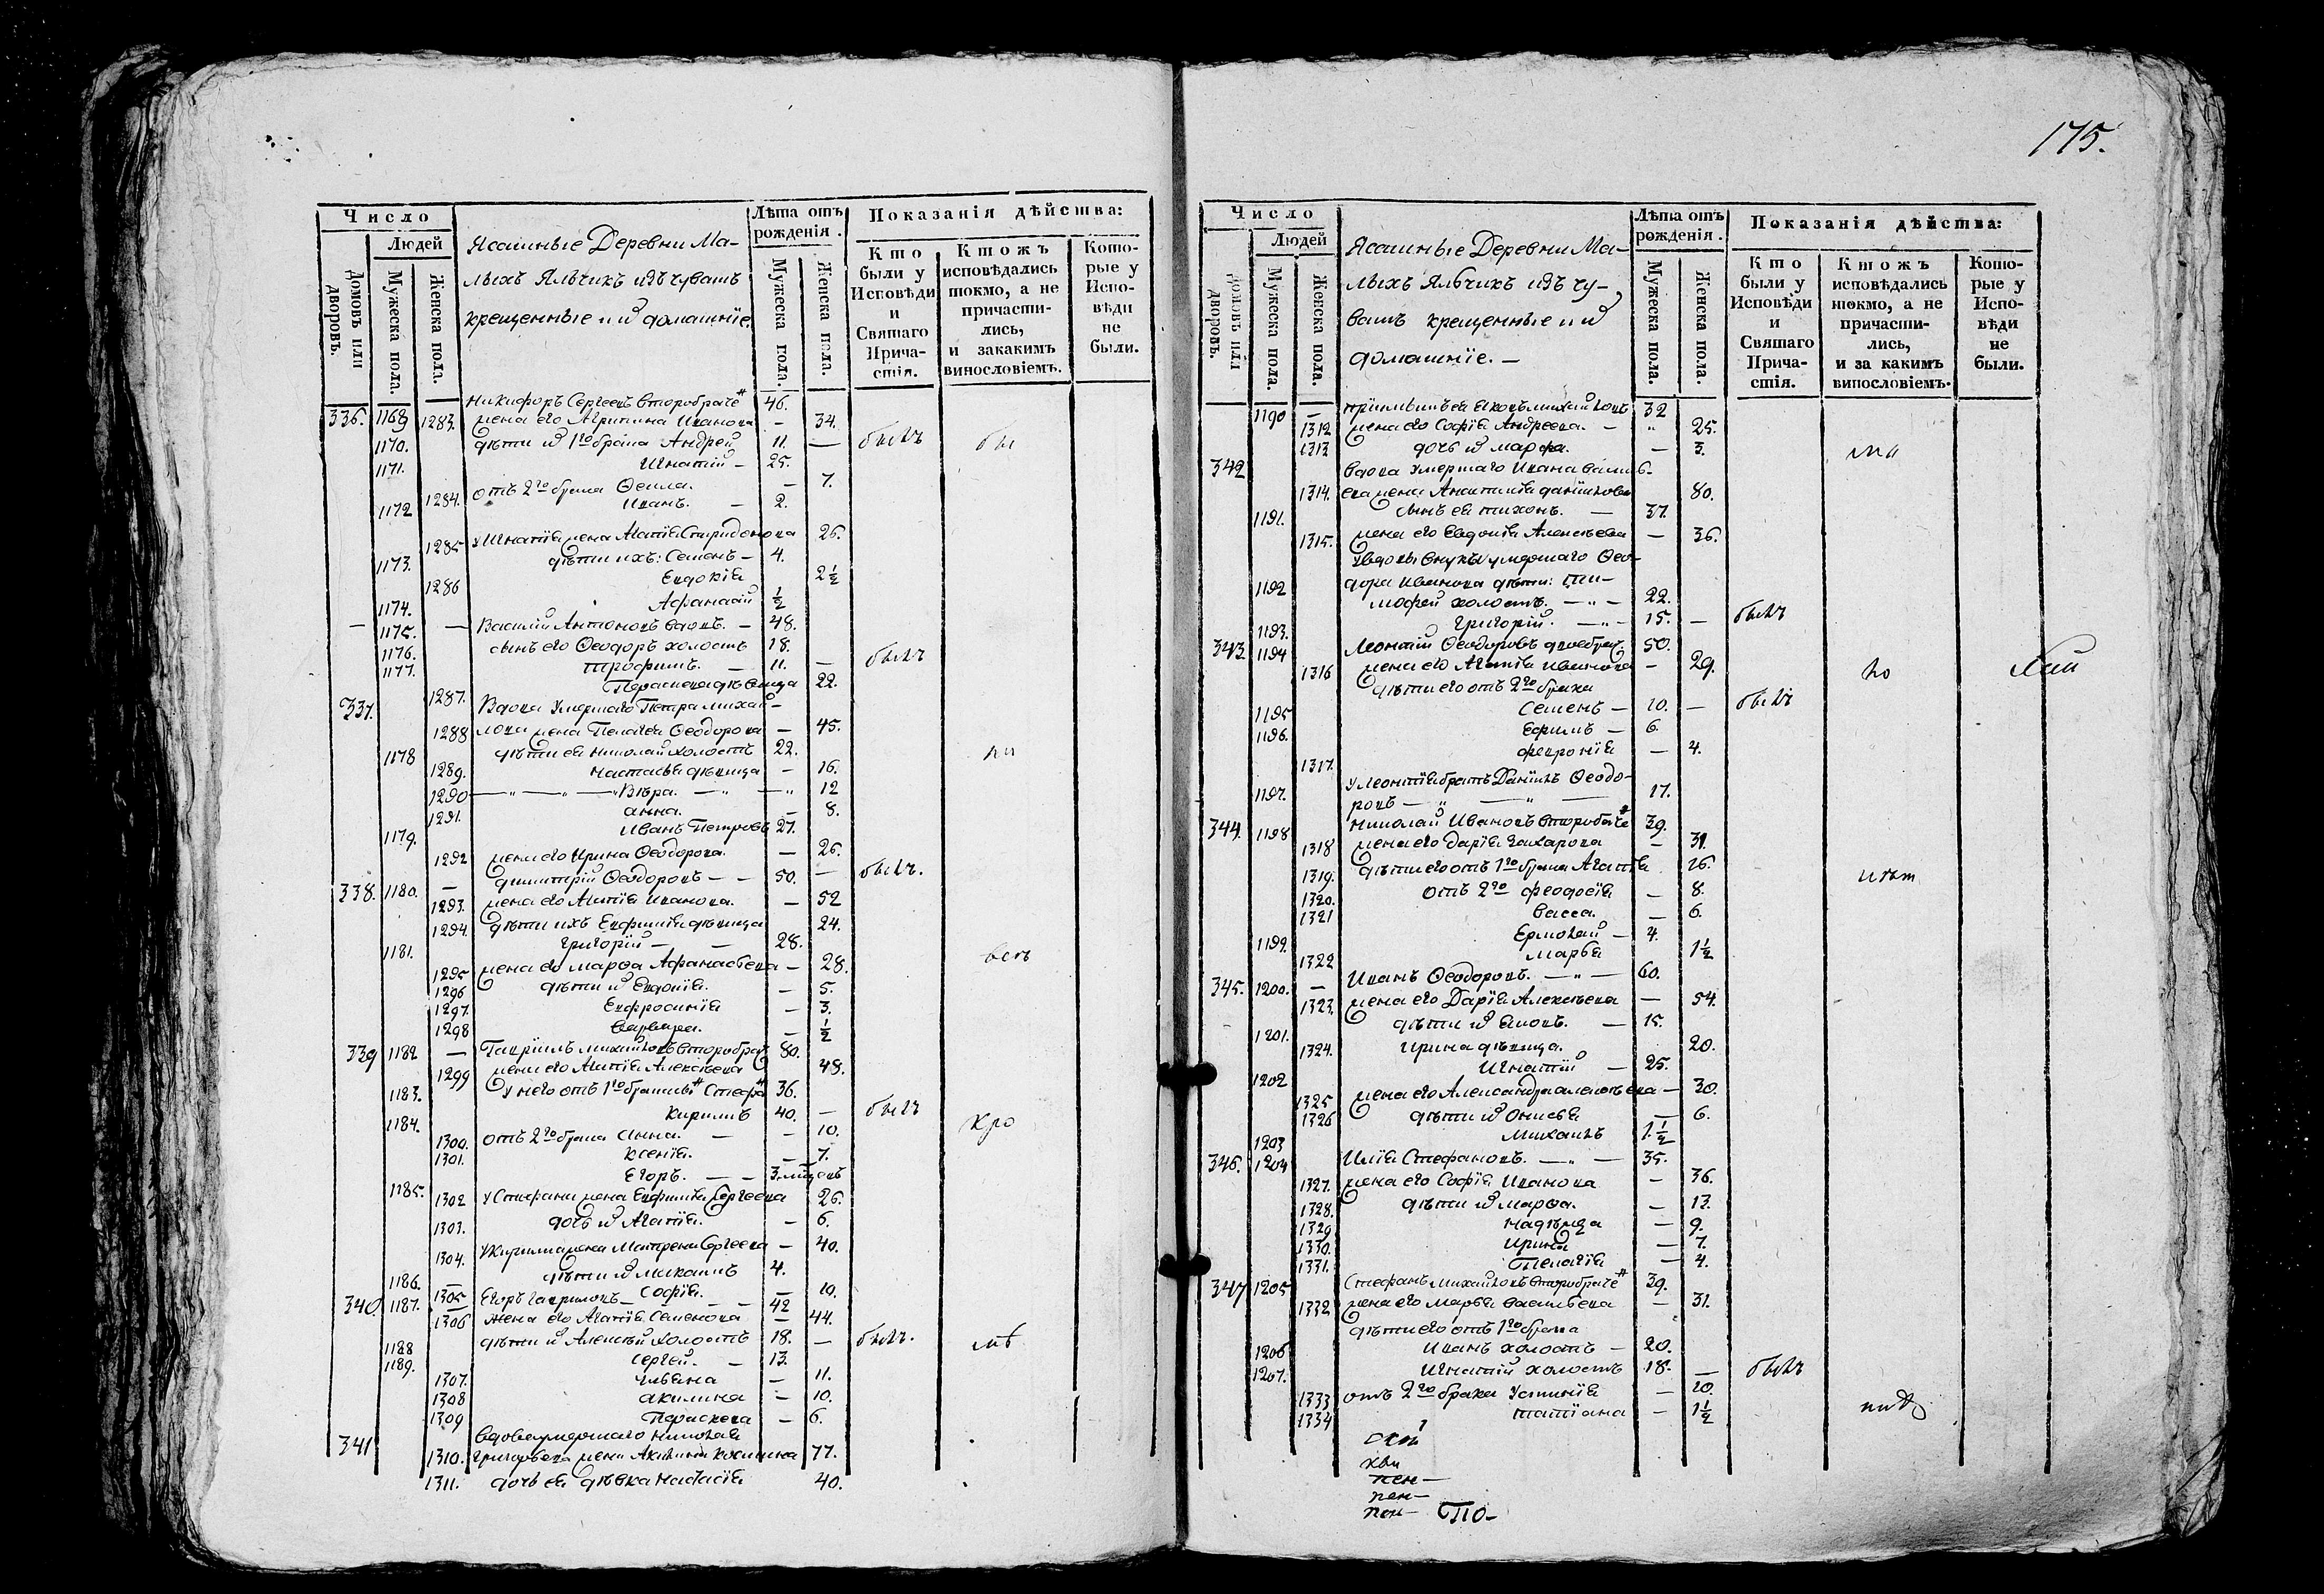 Число
Людей
Домовъ или дворовъ.
Мужеска пола.
Женска пола.
Ясашные Деревни Ма-
лыхъ Яльчикъ изъ чувашъ
крещенные и ихъ домашніе.
Лѣта отъ рожденія.
Мужеска пола.
Женска пола.
Показанія дѣйства:
Кто были у Исповѣди и Святаго Прича-стія.
Ктожъ исповѣдались токмо, а не причасти-лись, и закакимъ винословіемъ.
Кото-рые у Испо-вѣди не были.
Никифоръ Сергеевъ второбраче 46.
336. 1168 1283. жена его Агрипина Иванова — 34.
1170. дѣти их 1го брака Андрей 11. — былъ бы
1171. Игнатій — 25.
1284. отъ 2го брака Ѳекла. — 7.
1172 Иванъ. — 2.
1285 у Игнатія жена Агапія Спиридонова 26.
1173. дѣти ихъ: Семенъ — 4.
1286 Евдокія 2½
1174. Афанасій ½
— 1175. — Василій Антоновъ вдовъ. — 48.
1176. сынъ его Ѳеодоръ холостъ 18.
1177. Трофимъ. — 11. — былъ
1287. Параскева дѣвица 22.
337. Вдова умершаго Петра Михай-
1288 лова жена Пелагея Ѳеодорова — 45.
1178 дѣти ея Николай холостъ 22.
1289. Настасья дѣвица — 16.
1290 Вѣра. 12
1291. Анна. — 8.
1179. Иванъ Петровъ 27.
1292 жена его Ирина Ѳеодорова. — 26.
338. 1180. — Димитрій Ѳеодоровъ — 50. — былъ.
1293. жена его Агапія Иванова. — 52
1294. дѣти ихъ Евфимія дѣвица 24.
1181. Григорій — 28.
1295 жена его Марѳа Афанасьева — 28.
1296 дѣти их Евдокія. — 5.
1297. Евфросинія — 3.
1298 Варвара. — ½
339 1182 — Гавріилъ Михайловъ второбрач 80.
1299 жена его Агапія Алексѣева 48.
1183. У него отъ 1го брака Стефа 36.
1184. Кирилъ 40. — былъ
1300. отъ 2го брака Анна. — 10.
1301. Ксенія. — 7.
1185. Егоръ. — 3. мѣсяцовъ
1302 у Стефана жена Евфимія Сергеева 26.
1303. дочь их Агапія. — 6.
1304. У Кирила жена Матрена Сергеева — 40.
1186. дѣти их Михаилъ 4.
1305 Софія. — 10.
340. 1187. — Егоръ Гавриловъ — 42
1306 жена его Агапія Семенова — 44.
1188 дѣти их Алексѣй холостъ 18. — былъ.
1189. Сергей. — 13.
1307. Ульяна — 11.
1308 Акилина — 10.
1309 Параскева — 6.
341 Вдова умершаго Николая
1310. Григорьева жена Акилина Козмина 77.
1311. дочь ея дѣвка Настасія 40.
175.
Число
Людей
Домовъ или дворовъ.
Мужеска пола.
Женска пола.
Ясашные Деревни Ма-
лыхъ Яльчикъ изъ чу-
вашъ крещенные и их
домашніе. —
Лѣта отъ рожденія.
Мужеска пола.
Женска пола.
Показанія дѣйства:
Кто были у Исповѣди и Святаго Прича-стія.
Ктожъ исповѣдались токмо, а не причасти-лись, и за какимъ винословіемъ.
Кото-рые у Испо-вѣди не были.
1190 — Михайловъ 32
1312 жена его Софія Андреева. — 25.
1313 дочь их Марфа. — 3.
342 Вдова умершаго Ивана Василь-
1314. ева жена Анастасія 80.
1191. сынъ ея Тихонъ. — 37.
1315. жена его Евдокія Алексѣева — 36.
У вдовы внуки умершаго Ѳео-
1192 дора Иванова дѣти: Ти-
мофей холостъ. 22.
1193. Григорій. 15. — былъ
343 1194 Леонтій Ѳеодоровъ двоебрач. 50.
1316 жена его Агапія Иванова — 29.
дѣти его отъ 2го брака
1195 Семенъ — 10. — былъ
1196. Ефимъ — 6.
1317. Феврония — 4.
1197. У Леонтія братъ Данилъ Ѳеодо-
ровъ — 17.
344. 1198 Николай Ивановъ второбраче 39.
1318 жена его Дарія Захарова — 31.
1319. дѣти его отъ 1го брака Агапія 16.
1320. отъ 2го Феодосія — 8.
1321 Васса. — 6.
1199. Ермолай — 4.
1322 Марья 1½
345. 1200. — Иванъ Ѳеодоровъ. 60.
1323. жена его Дарія Алексѣева — 54.
1201. дѣти их Яковъ. — 15.
1324. Ирина дѣвица. 20.
1202 Игнатій — 25.
1325 жена его Александра Алексѣева — 30.
1326 дѣти их Онисья — 6.
1203 Михаилъ 1½
346. 1204 Илія Стефановъ. 35.
1327. жена его Софія Иванова — 36.
1328. дѣти их Марѳа. — 13.
1329 Надѣжда — 9.
1330. Ирина — 7.
1331. Пелагія — 4.
347 1205 Стефанъ Михайловъ второбраче 39.
1332 жена его Марья Васильева — 31.
дѣти его отъ 1го брака
1206 Иванъ холостъ — 20.
1207. Игнатій холостъ 18. — былъ
1333 отъ 2го брака Устинія — 10.
1334 Татіана — 1½